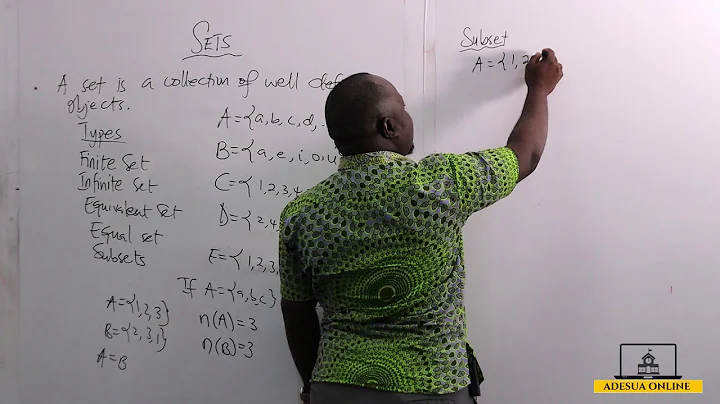 SETS
A set is a collection of well def
objects.
Types
Finite Set
Infinite Set
Equivalent Set
Equal set
Subsets
A={1,2,3}
B={2,3,1}
A=B
A={a,b,c,d,
B={a,e,i,o,u
C={1,2,3,4
D={2,4,
E={1,2,3,
If A={a,b,c}
n(A)=3
n(B)=3
Subset
A={1,2
ADESUA ONLINE